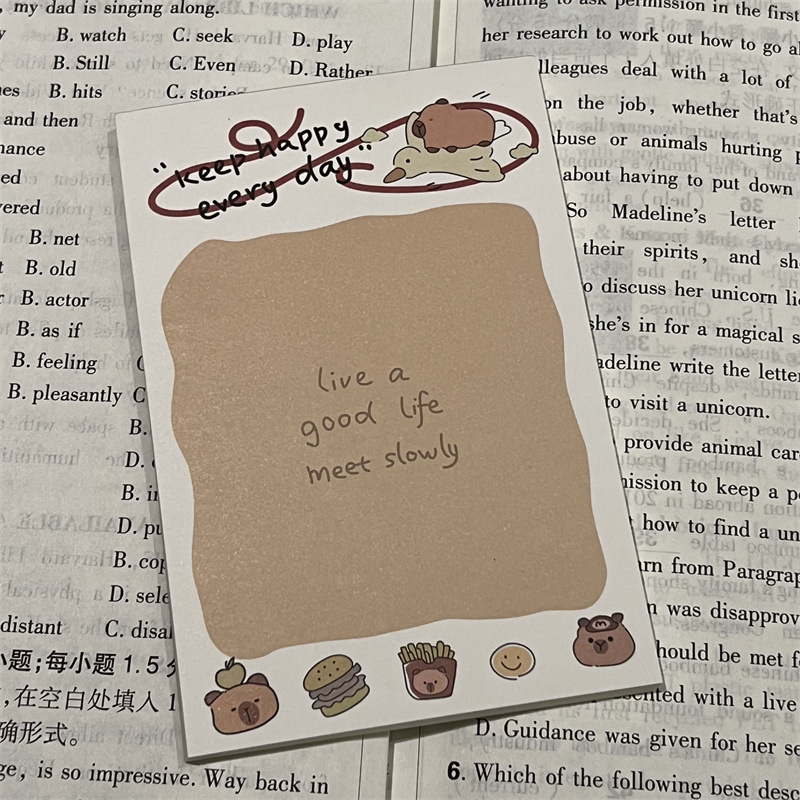 , my dad is singing along.
B. watch C. seek D. play
B. Still C. Even D. Rather
B. hits
and then
B. net
B. old
B. actor
B. as if
B. feeling
B. pleasantly C
B.
D.
B.
D.
B.
D.
distant C.
小题;每小题 1.5
,在空白处填入 1
确形式。
, is so impressive. Way back in
"keep happy
every day"
live a
good life
meet slowly
to ask permission in the first
her research to work out how to go
deal with a lot of
on the job, whether that's
or animals hurting
about having to put down
So Madeline's letter
their spirits, and
discuss her unicorn
she's in for a magical
write the letter
to visit a unicorn.
provide animal
to keep a
how to find a
from
was
should be met
with a live
D. Guidance was given for her
6. Which of the following best